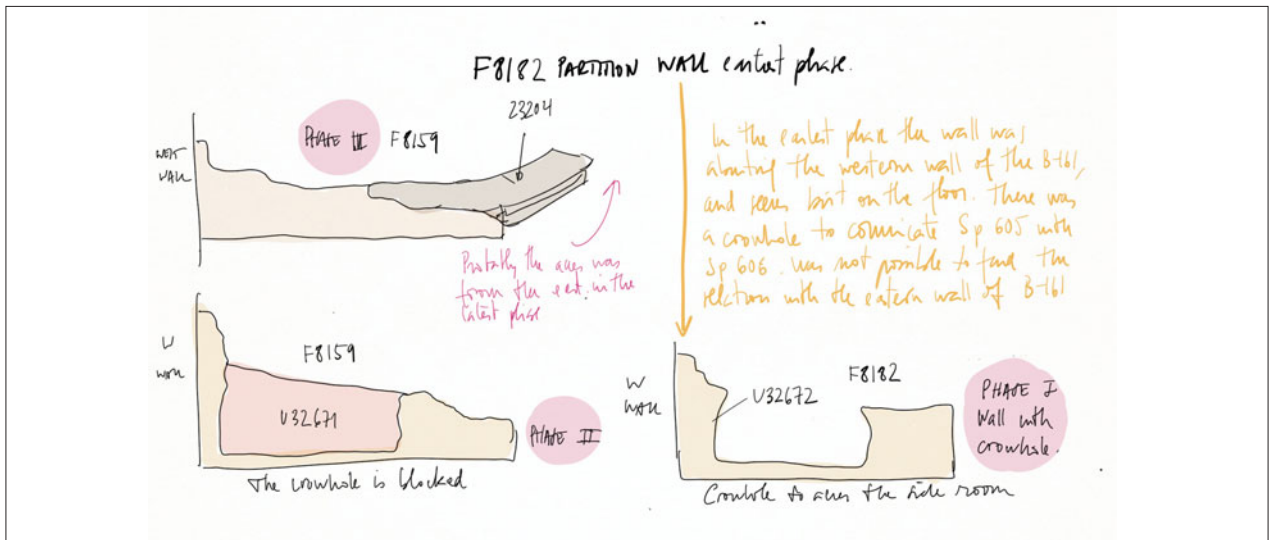 F8182 PARTITION WALL earliest phase.
23204
PHASE III F8159
WEST
WALL
Probably the acces was
from the east. in the
latest phase
In the earliest phase the wall was
abuting the western wall of the B-161,
and seems built on the floor. There was
a crowhole to comunicate Sp 605 with
Sp 606. was not possible to find the
relation with the eastern wall of B-161
W
WALL
F8159
U32671
PHASE II
The crowhole is blocked
W
WALL
U32672
F8182
PHASE I
Wall with
crowhole.
Crowhole to acces the side room